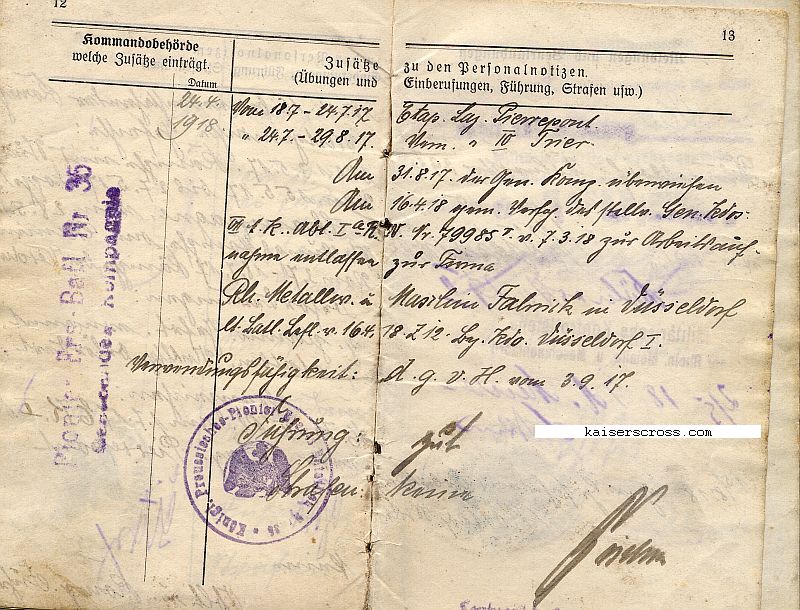 12
13
Kommandobehörde
welche Zusätze einträgt.
Datum
Zusätze zu den Personalnotizen.
(Übungen und Einberufungen, Führung, Strafen usw.)
24.4.
1918
Vom 18.7 – 24.7.17 Etap. Laz. Pierrepont.
" 24.7. – 29.8.17. " IV Trier.
Am 31.8.17. der Gen. Komp. überwiesen
Am 16.4.18 gem. Verfg. des stellv. Gen. Kdos.
Nr. 79985 v. 7.3.18 zur Arbeitsauf-
nahme entlassen zur Firma
Rh. Metallw. u Maschin Fabrik in Düsseldorf
lt. Batl. Bef. v. 16.4.18 Z 12. Bz. Kdo. Düsseldorf I.
Verwendungsfähigkeit: d. g. v. H. vom 3.9.17.
Führung: gut
Strafen: keine
Pionier-Ers-Batl. Nr 36
Genesenden Kompagnie
Königl. Preussisches Pionier
kaiserscross.com